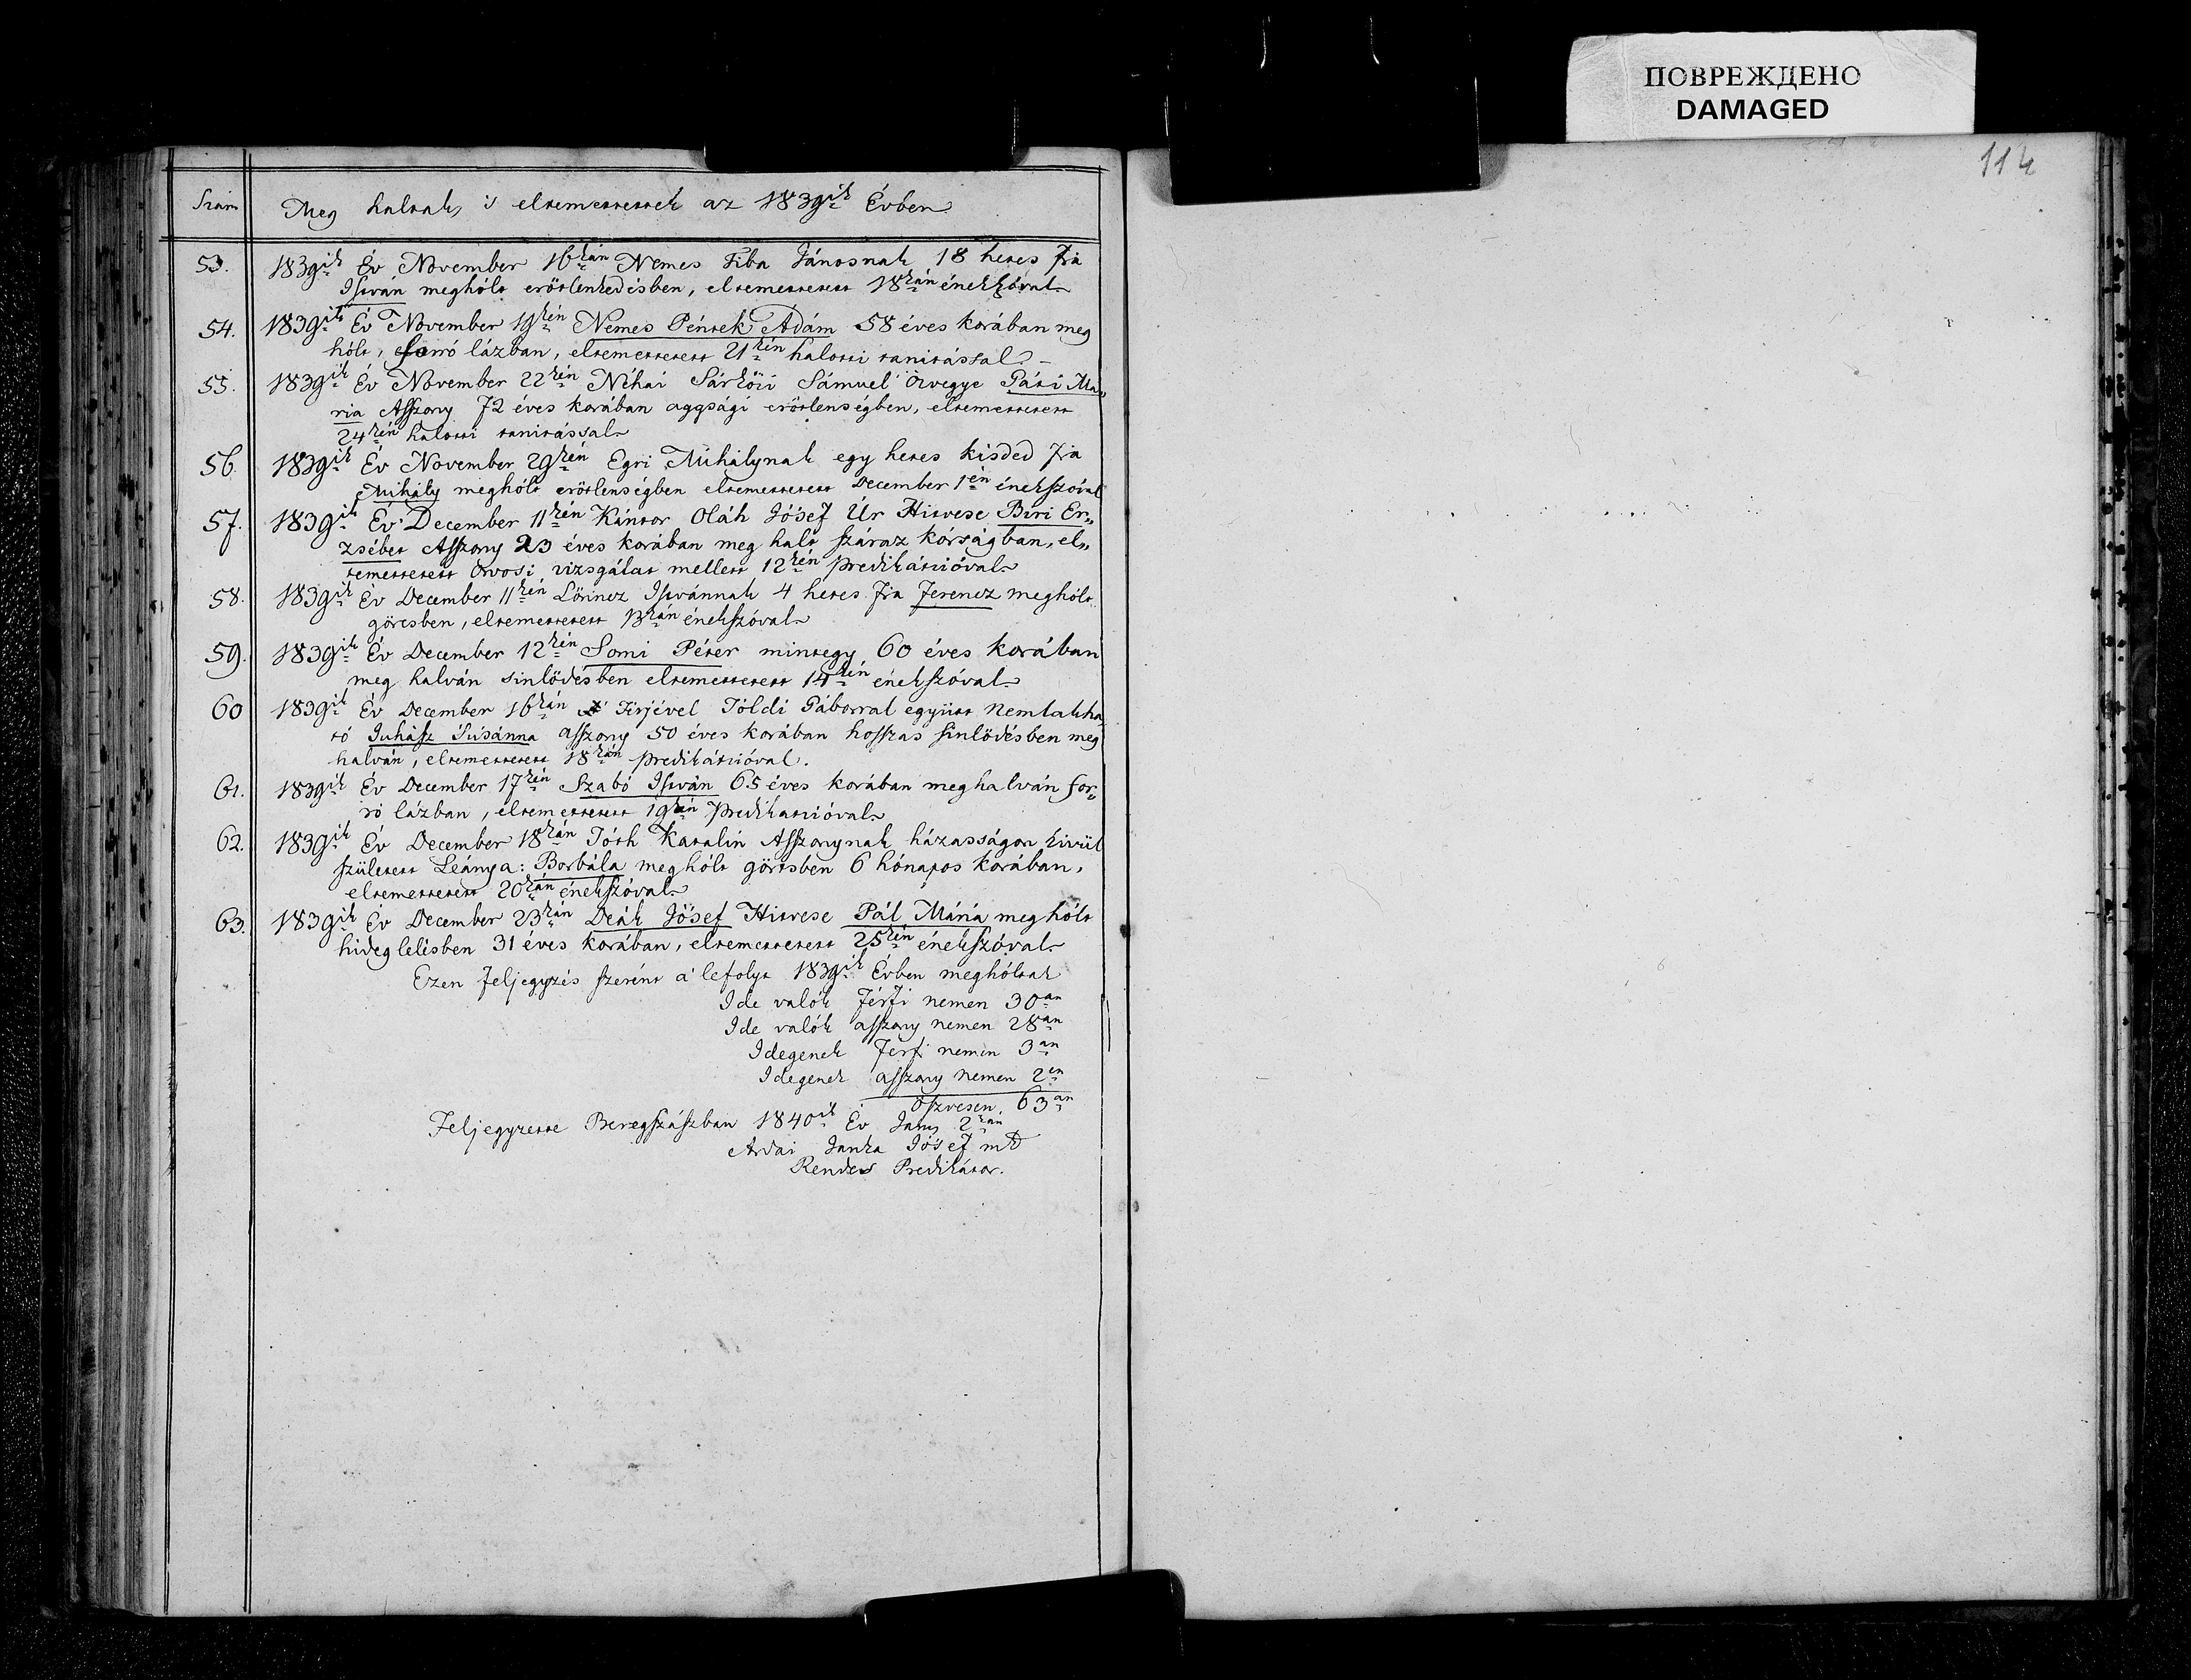 ПОВРЕЖДЕНО
DAMAGED
114
Szám Meg haltak, 's eltemettettek az 1839ik Évben
53. 1839ik Év November 16kán Nemes Fiba Jánosnak 18 hetes fia
István meghólt erőtlenkedésben, eltemettetett 18kán énekszóval
54. 1839ik Év November 19kén Nemes Péntek Ádám 58 éves korában meg
hólt, forró lázban, eltemettetett 21kén halotti tanitással
55. 1839ik Év November 22kén Néhai Sárközi Sámuel Özvegye Pári Má„
ria Aſszony 72 éves korában aggsági erőtlenségben, eltemettetett
24kén halotti tanitással
56. 1839ik Év November 29kén Egri Mihálynak egy hetes kisded fia
Mihály meghólt erőtlenségben eltemettetett December 1én énekszóval
57. 1839ik Év December 11kén Kántor Oláh Jósef Úr Hitvese Biri Er„
zsébet Aſszony 23 éves korában meg halt száraz kórságban, el„
temettetett Orvosi vizsgálat mellett 12kén predikátzióval
58. 1839ik Év December 11kén Lőrincz Istvánnak 4 hetes fia Ferencz meghólt
görcsben, eltemettetett 13kán énekszóval
59. 1839ik Év December 12kén Somi Péter mintegy 60 éves korában
meg halván sinlődésben eltemettetett 14kén énekszóval
60 1839ik Év December 16kán Férjével Tóldi Gáborral együtt nem lakha
tó Juhász Susánna aſszony 50 éves korában hoſszas sinlődésben meg
halván, eltemettetett 18kán predikátzióval.
61. 1839ik Év December 17kén Szabó István 65 éves korában meghalván for„
ró lázban, eltemettetett 19kén predikatzióval
62. 1839ik Év December 18kán Tóth Katalin Aſszonynak házasságon kivül
született Leánya: Borbála meghólt görtsben 6 hónapos korában,
eltemettetett 20kán énekszóval
63. 1839ik Év December 23kán Deák Jósef Hitvese Pál Mária meghólt
hideglelésben 31 éves korában, eltemettetett 25kén énekszóval
Ezen feljegyzés szerént a' lefolyt 1839ik Évben meghóltak
Ide valók férfi nemen 30an
Ide valók aſszony nemen 28an
Idegenek férfi nemen 3an
Idegenek aſszony nemen 2en
öszvesen 63an
Feljegyzette Beregszászban 1840ik Év Jan. 2kán
Ardai Janka Jósef mk
Rendes Predikátor.